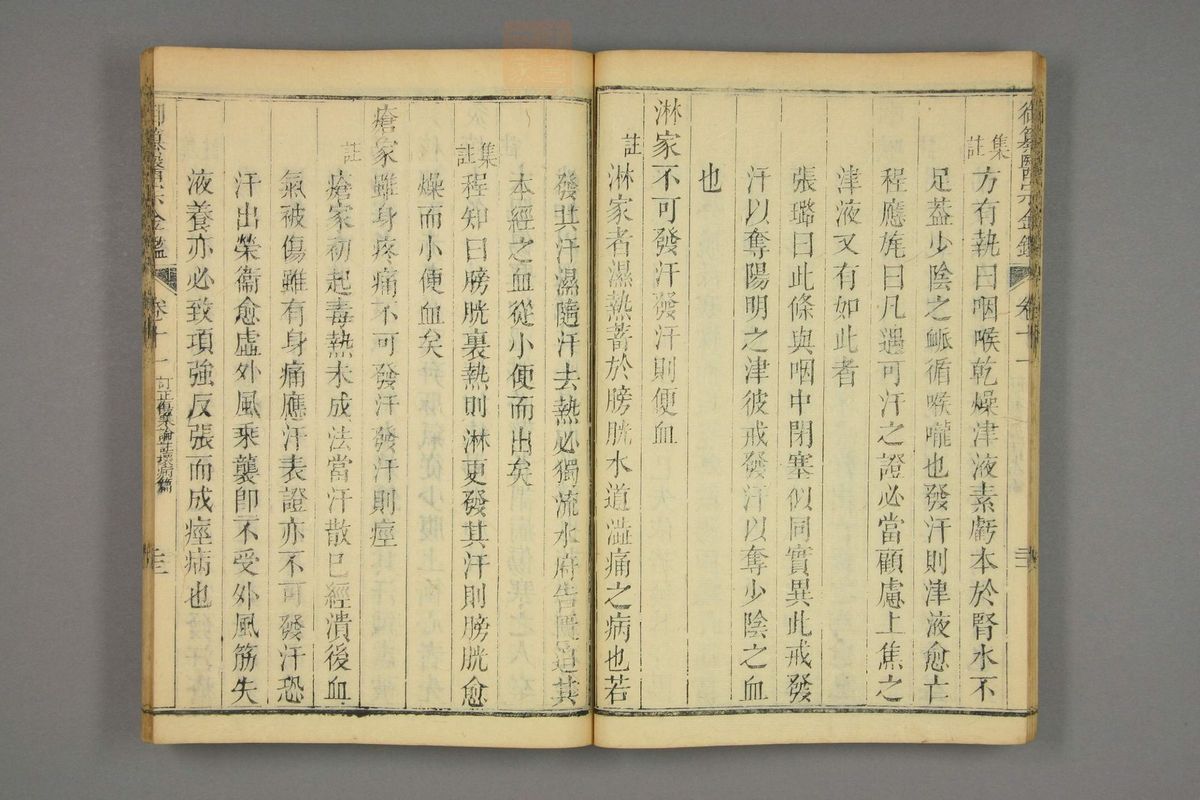 御纂醫宗金鑑 卷十一
集註
方有執曰咽喉乾燥津液素虧本於腎水不
足蓋少陰之脈循喉嚨也發汗則津液愈亡
程應旄曰凡遇可汗之證必當顧慮上焦之
津液又有如此者
張璐曰此條與咽中閉塞似同實異此戒發
汗以奪陽明之津彼戒發汗以奪少陰之血
也
淋家不可發汗發汗則便血
註
淋家者濕熱蓄於膀胱水道澁痛之病也若
發其汗濕隨汗去熱必獨流水府告匱迫其
本經之血從小便而出矣
集註
程知曰膀胱裏熱則淋更發其汗則膀胱愈
燥而小便血矣
瘡家雖身疼痛不可發汗發汗則痙
註
瘡家初起毒熱未成法當汗散已經潰後血
氣被傷雖有身痛應汗表證亦不可發汗恐
汗出榮衞愈虛外風乘襲卽不受外風筋失
液養亦必致項強反張而成痙病也
御纂醫宗金鑑 卷十一 訂正傷寒論註壞病篇